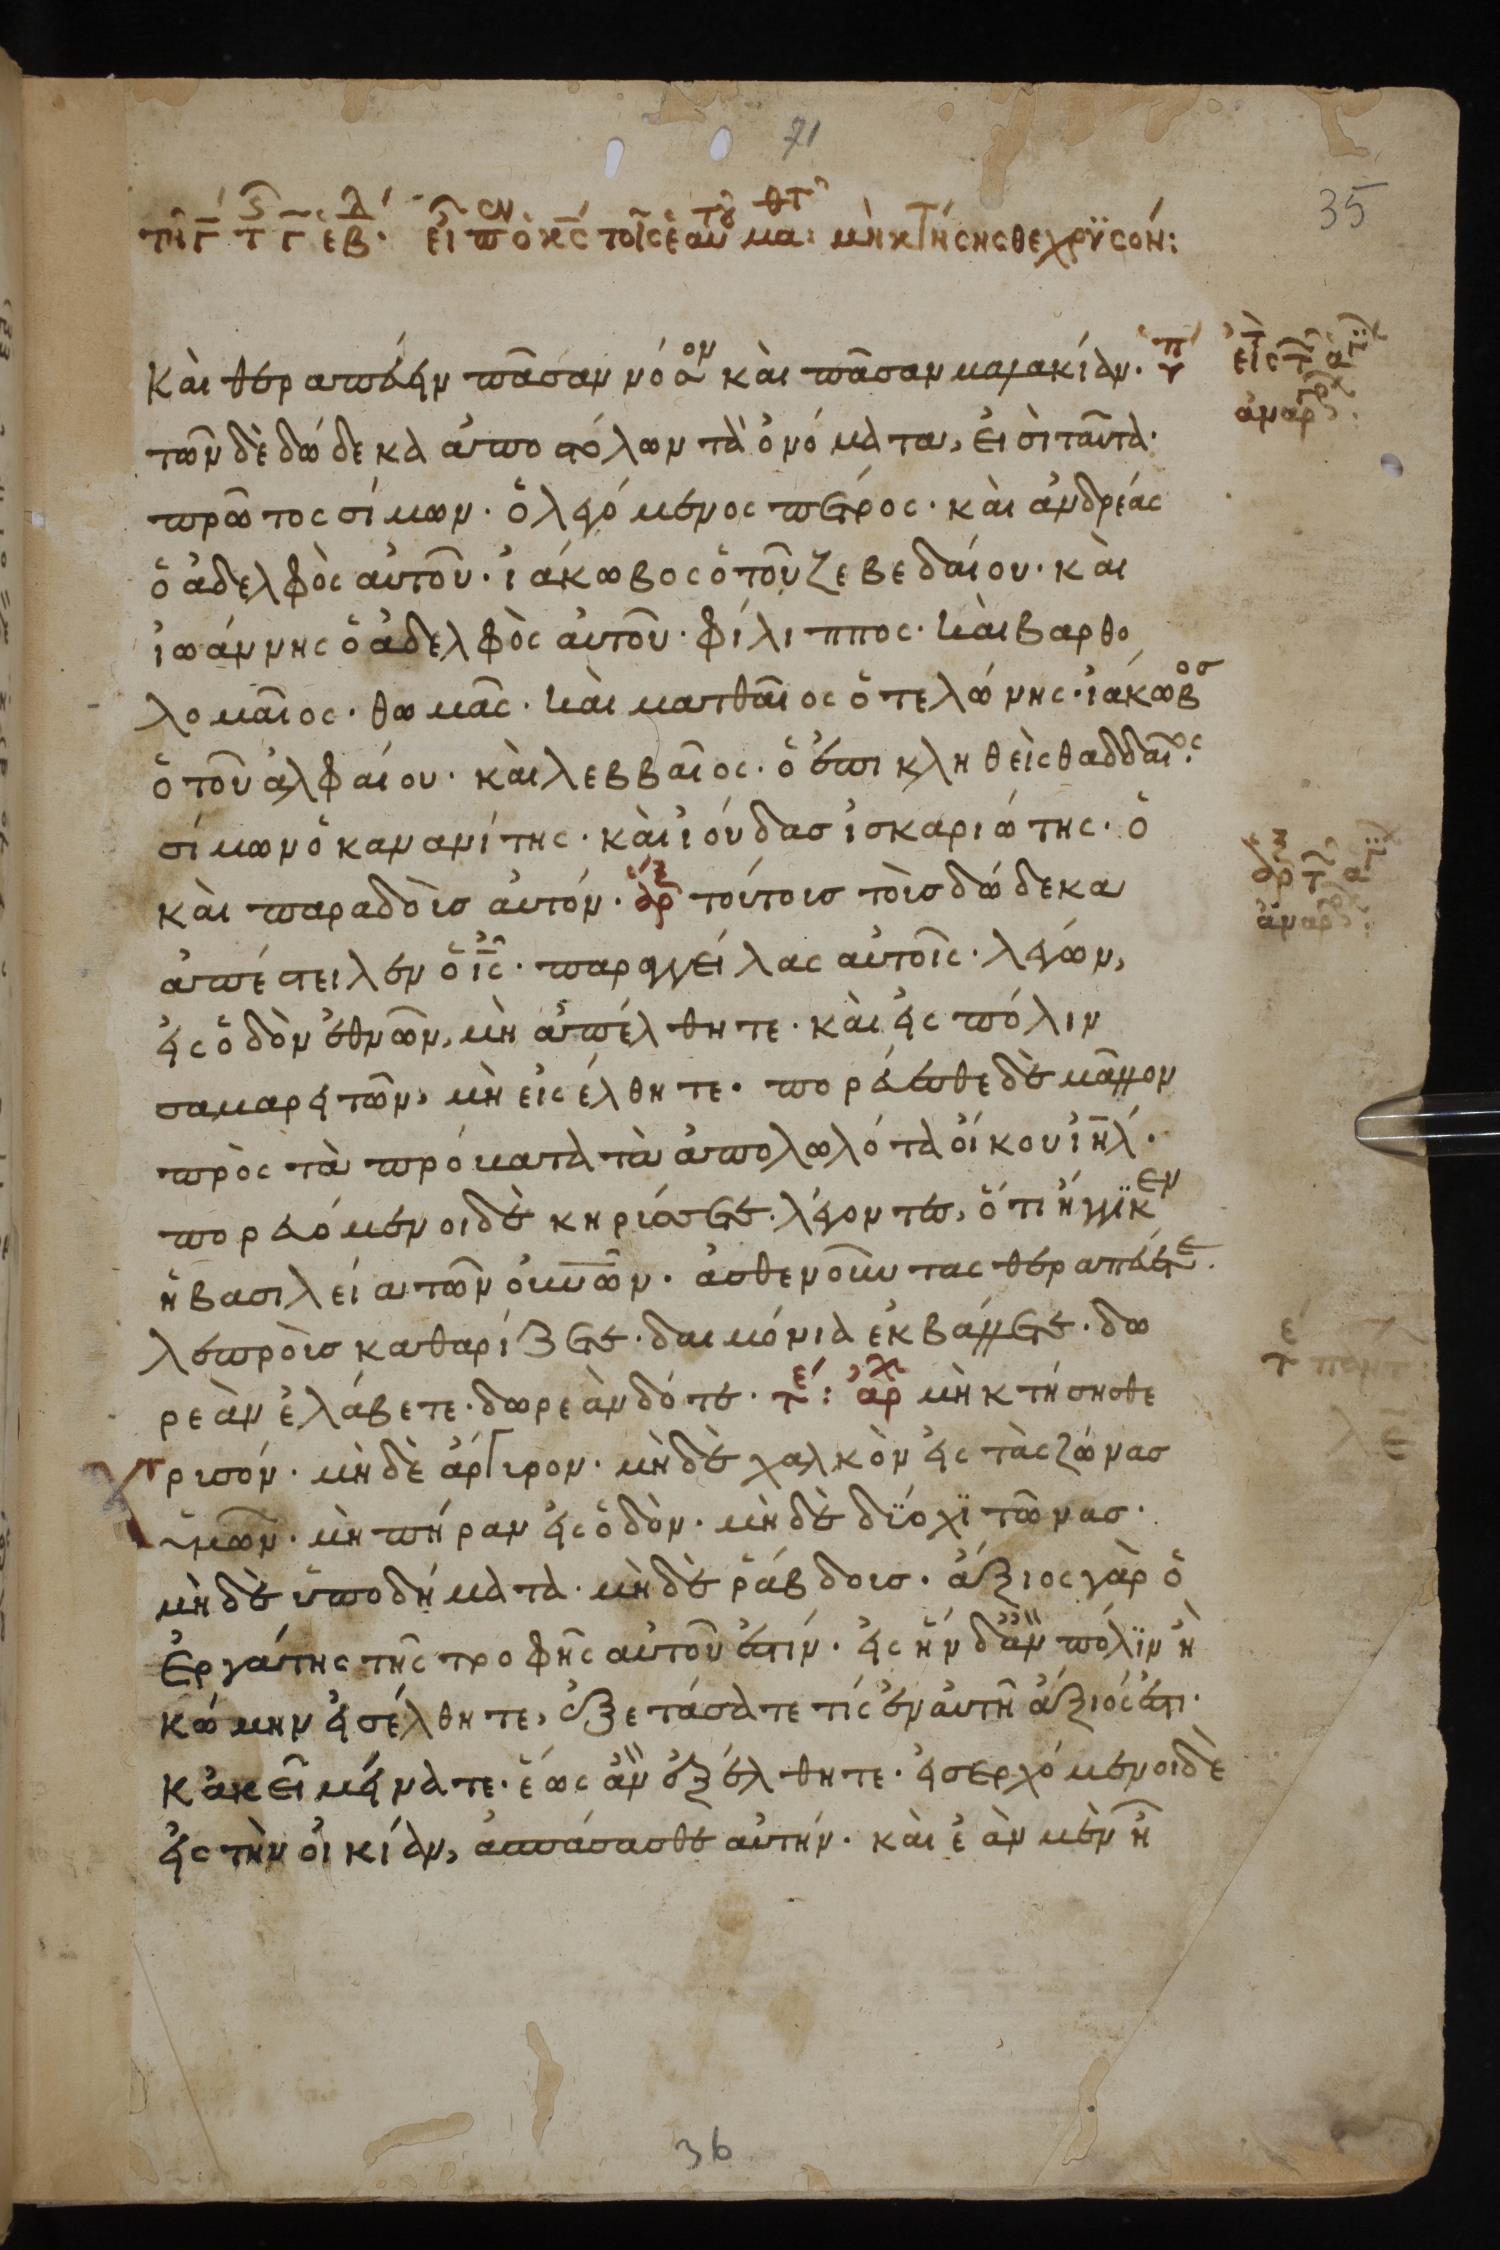 71
35
μὴ κτήσησθε χρϋσόν:
Καὶ θεραπεύειν πᾶσαν νόσον καὶ πᾶσαν μαλακίαν.
τῶν δὲ δώδεκα ἀποστόλων τὰ ὀνόματα, εἰσὶ ταῦτα·
πρῶτος σίμων· ὁ λεγόμενος πέτρος· καὶ ἀνδρέας
ὁ ἀδελφὸς αὐτοῦ· ἰάκωβος ὁ τοῦ ζεβεδαίου· καὶ
ἰωάννης ὁ ἀδελφὸς αὐτοῦ· φίλιππος· καὶ βαρθο
λομαῖος· θωμᾶς· καὶ ματθαῖος ὁ τελώνης· ἰάκωβος
ὁ τοῦ ἀλφαίου· καὶ λεββαῖος· ὁ ἐπικληθεὶς θαδδαῖος·
σίμων ὁ κανανίτης· καὶ ἰούδασ ἰσκαριώτης· ὁ
καὶ παραδοὺσ αὐτόν· τούτουσ τοὺσ δώδεκα
ἀπέστειλεν ὁ ἰς· παραγγείλας αὐτοῖς· λέγων,
εἰς ὁδὸν ἐθνῶν, μὴ ἀπέλθητε· καὶ εἰς πόλιν
σαμαρειτῶν, μὴ εἰσέλθητε· πορεύεσθε δὲ μᾶλλον
πρὸς τὰ πρόβατα τὰ ἀπολωλότα οἴκου ιηλ·
πορευόμενοι δὲ κηρύσσετε· λέγοντες, ὅτι ἤγγϊκεν
ἡ βασιλεία τῶν οὐνῶν· ἀσθενοῦντας θεραπεύετε·
λεπροὺσ καθαρίζετε· δαιμόνια ἐκβάλλετε· δω
ρεὰν ἐλάβετε· δωρεὰν δότε· μὴ κτήσησθε
χρυσόν· μὴδὲ ἄργυρον· μὴδὲ χαλκὸν εἰς τὰς ζώνασ
ὑμῶν· μὴ πήραν εἰς ὁδὸν· μὴδὲ δύο χϊτῶνασ·
μὴδὲ ὑποδήματα· μὴδὲ ῥάβδουσ· ἄξιος γὰρ ὁ
ἐργάτης τῆς τροφῆς αὐτοῦ ἐστίν· εἰς ἣν δ' ἂν πόλϊν ἢ
κώμην εἰσέλθητε, ἐξετάσατε τίς ἐν αὐτῇ ἄξιός ἐστι·
κἀκεῖ μείνατε· ἕως ἂν ἐξέλθητε· εἰσερχόμενοι δὲ
εἰς τὴν οἰκίαν, ἀσπάσασθε αὐτήν· καὶ ἐὰν μὲν ᾖ
36